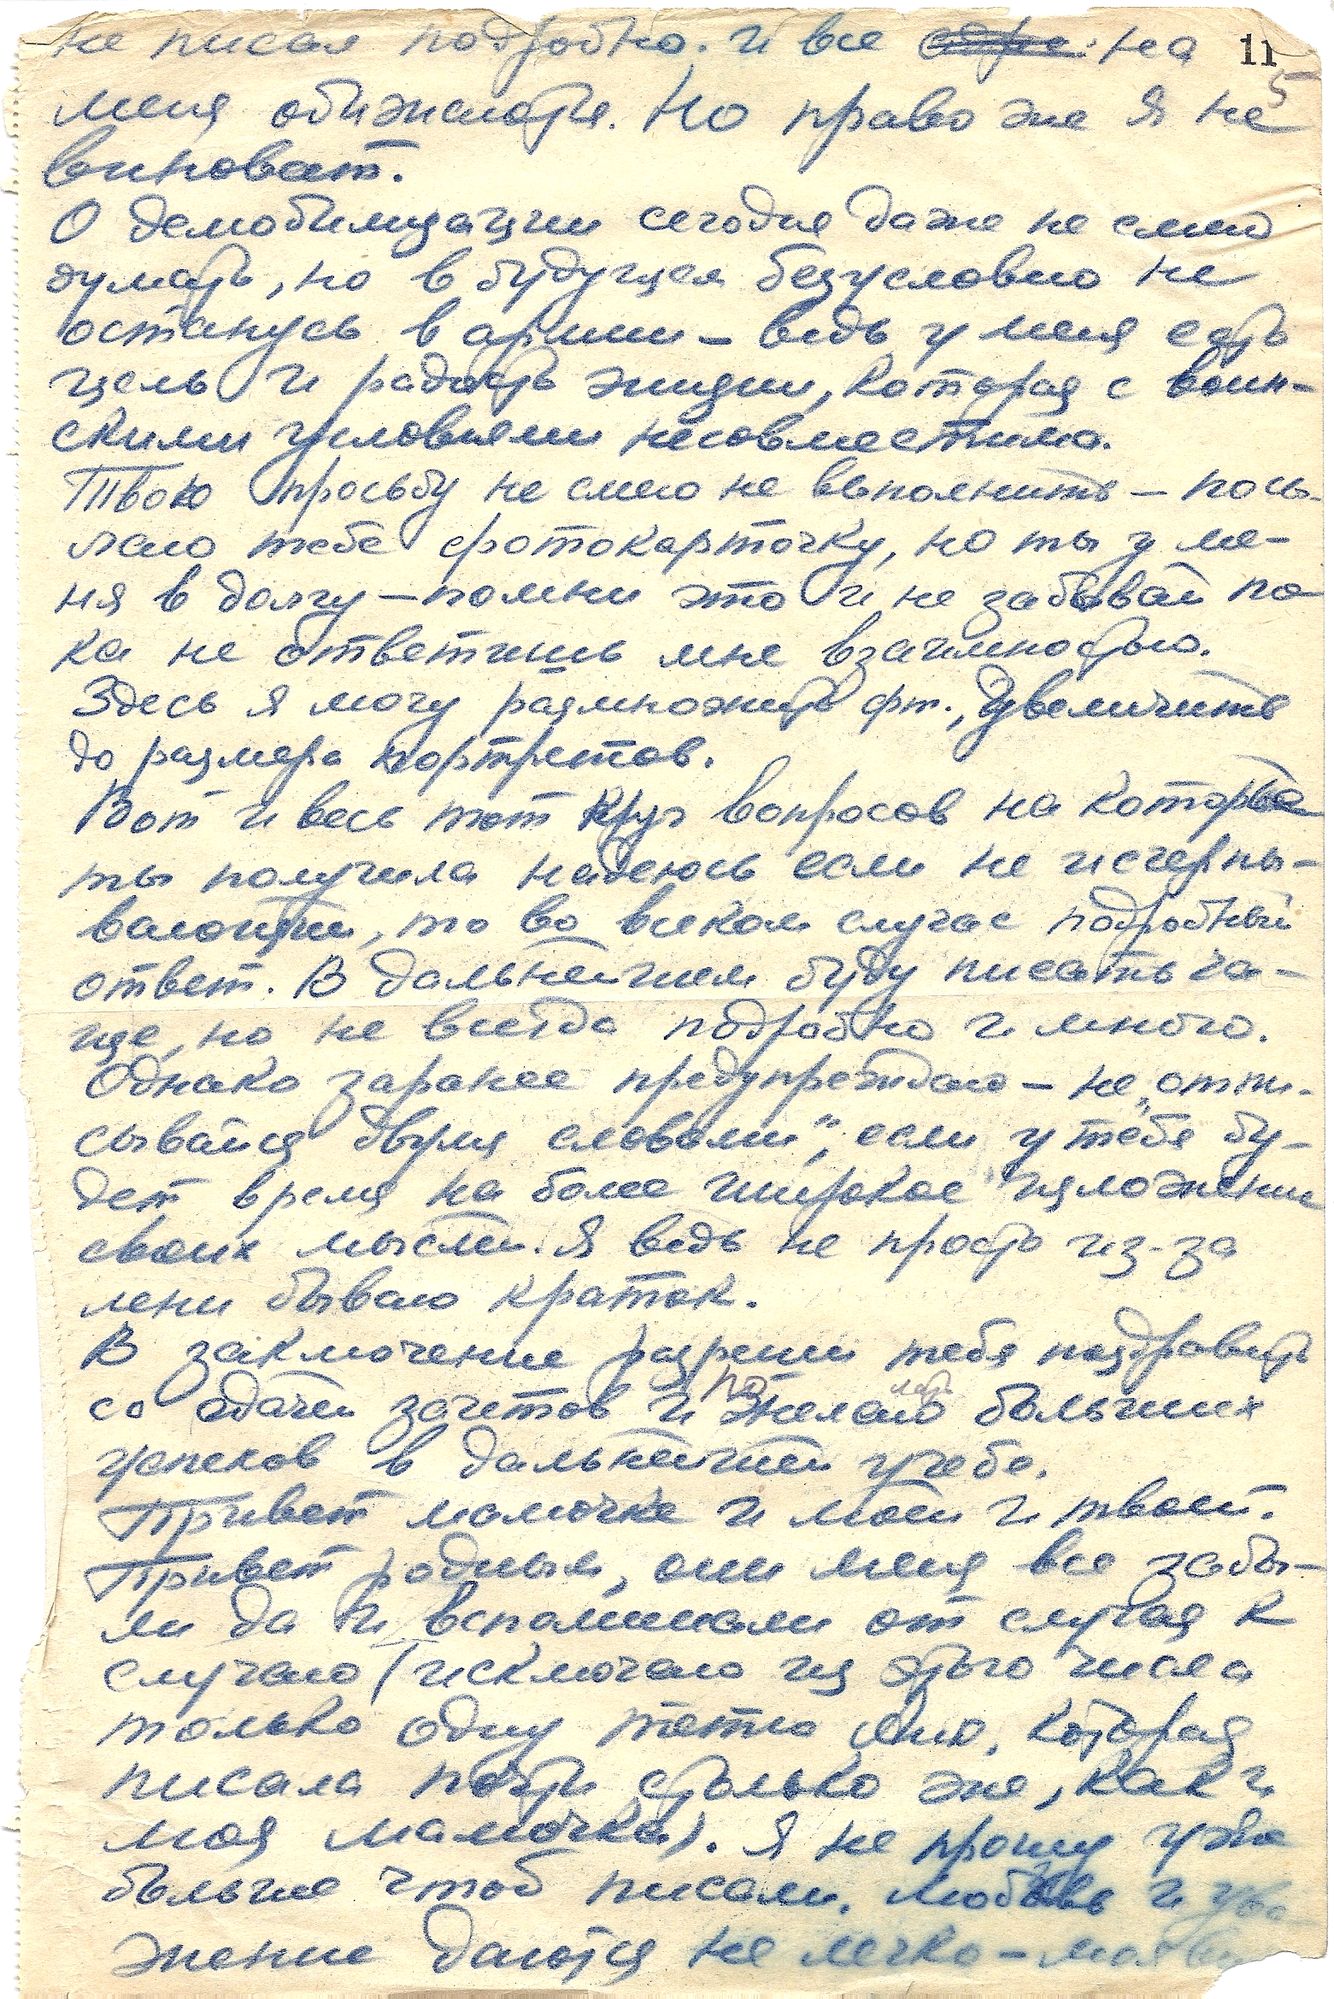 не писал подробно. И все на 11
меня обижались. Но право же я не 5
виноват.
О демобилизации сегодня даже не смею
думать, но в будущем безусловно не
останусь в армии – ведь у меня есть
цель и радость жизни, которая с воин-
скими условиями несовместима.
Твою просьбу не смею не выполнить – посы-
лаю тебе фотокарточку, но ты у ме-
ня в долгу – помни это и не забывай по-
ка не ответишь мне взаимностью.
Здесь я могу размножить фт., увеличить
до размера портретов.
Вот и весь тот круг вопросов на которые
ты получила надеюсь если не исчерпы-
вающий, то во всяком случае подробный
ответ. В дальнейшем буду писать ча-
ще, но не всегда подробно и много.
Однако заранее предупреждаю – не „отпи-
сывайся двумя словами", если у тебя бу-
дет время на более широкое изложение
своих мыслей. Я ведь не просто из-за
лени бываю краток.
В заключение разреши тебя поздравить
со сдачей зачетов и пожелать больших
успехов в дальнейшей учебе.
Привет мамочке и моей и твоей.
Привет родным, они меня все забы-
ли да и вспоминали от случая к
случаю (исключаю из этого числа
только одну тетю которая
писала почти столько же, как и
моя мамочка). Я не прошу уже
больше чтоб писали. Любовь и ува-
жение даются не легко – моя